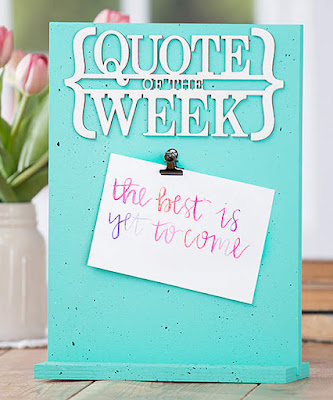 QUOTE
OF THE
WEEK
the best is
yet to come